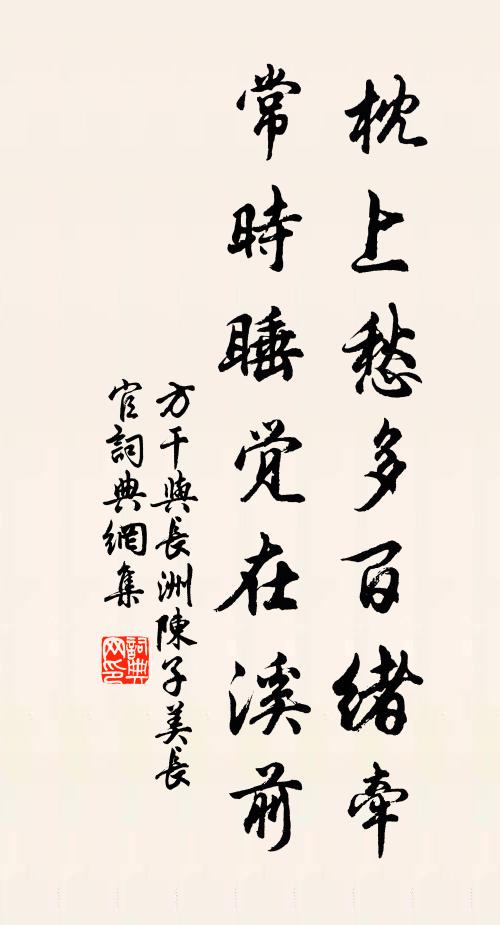 枕上愁多百緒牽
常時睡覚在溪前
方干與長洲陳子美長
官詞典網集
詞典網印